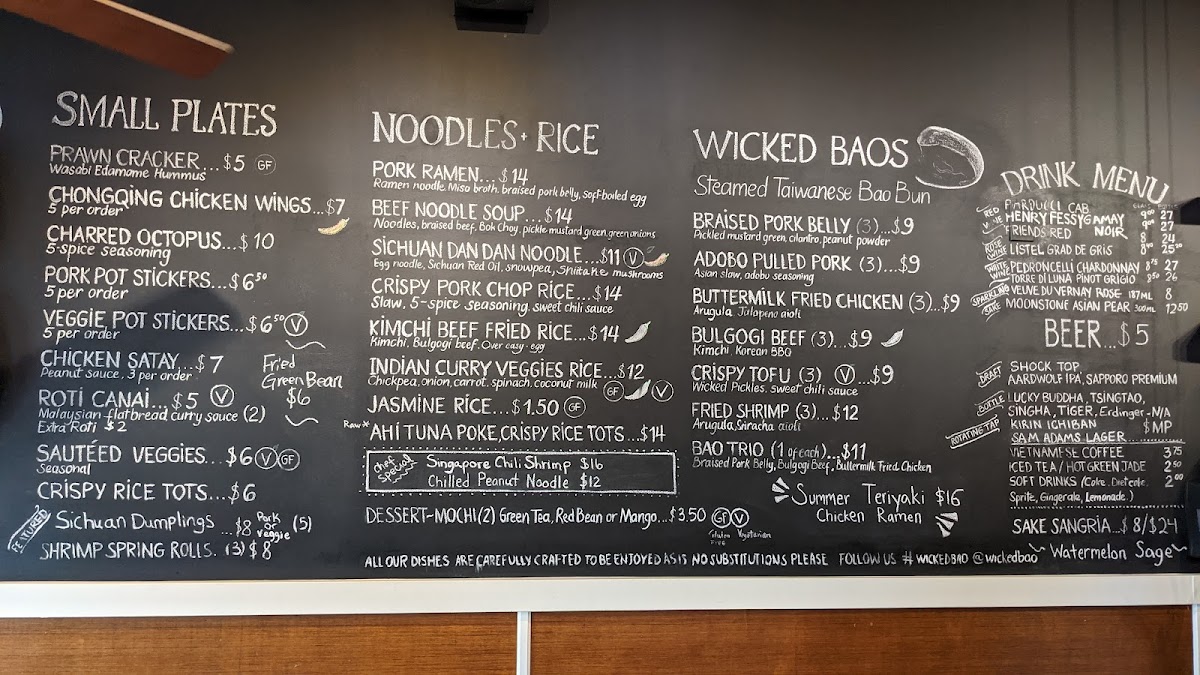 SMALL PLATES
PRAWN CRACKER...$5 GF
Wasabi Edamame Hummus
CHONGQING CHICKEN WINGS...$7
5 per order
CHARRED OCTOPUS...$10
5-spice seasoning
PORK POT STICKERS...$6.50
5 per order
VEGGIE POT STICKERS...$6.50 V
5 per order
CHICKEN SATAY...$7
Peanut sauce, 3 per order
Fried
Green Bean
$6
ROTI CANAI...$5 V
Malaysian flatbread curry sauce (2)
Extra Roti $2
SAUTÉED VEGGIES...$6 V GF
Seasonal
CRISPY RICE TOTS...$6
FEATURED
Sichuan Dumplings...$8 Pork or Veggie (5)
SHRIMP SPRING ROLLS. (3) $8
NOODLES + RICE
PORK RAMEN...$14
Ramen noodle, Miso broth, braised pork belly, soft-boiled egg
BEEF NOODLE SOUP...$14
Noodles, braised beef, Bok Choy, pickle mustard green, green onions
SICHUAN DAN DAN NOODLE...$11 V
Egg noodle, Sichuan Red Oil, snowpea, Shiitake mushrooms
CRISPY PORK CHOP RICE...$14
Slaw, 5-spice seasoning, sweet chili sauce
KIMCHI BEEF FRIED RICE...$14
Kimchi, Bulgogi beef, Over easy-egg
INDIAN CURRY VEGGIES RICE...$12
Chickpea, onion, carrot, spinach, coconut milk GF V
JASMINE RICE...$1.50 GF
Raw*
AHI TUNA POKE, CRISPY RICE TOTS...$14
chef special
Singapore Chili Shrimp $16
Chilled Peanut Noodle $12
DESSERT-MOCHI (2) Green Tea, Red Bean or Mango...$3.50
GF V
Gluten Free Vegetarian
WICKED BAOS
Steamed Taiwanese Bao Bun
BRAISED PORK BELLY (3)...$9
Pickled mustard green, cilantro, peanut powder
ADOBO PULLED PORK (3)...$9
Asian slaw, adobo seasoning
BUTTERMILK FRIED CHICKEN (3)...$9
Arugula, Jalapeno aioli
BULGOGI BEEF (3)...$9
Kimchi Korean BBQ
CRISPY TOFU (3) V...$9
Wicked Pickles, sweet chili sauce
FRIED SHRIMP (3)...$12
Arugula, Siracha aioli
BAO TRIO (1 of each)...$11
Braised Pork Belly, Bulgogi Beef, Buttermilk Fried Chicken
Summer Teriyaki $16
Chicken Ramen
ALL OUR DISHES ARE CAREFULLY CRAFTED TO BE ENJOYED AS IS NO SUBSTITUTIONS PLEASE FOLLOW US #WICKEDBAO @wickedbao
DRINK MENU
RED CAB 9.00 27
HENRY FESSY GAMAY 9.00 27
FRIENDS RED NOIR 8 24
ROSE WINE LISTEL GRAD DE GRIS
WHITE WINE PEDRONCELLI CHARDONNAY 8.75 27
TORRE DI LUNA PINOT GRIGIO 8.50 26
SPARKLING VEUVE DU VERNAY ROSE 187ML 8
SAKE MOONSTONE ASIAN PEAR 300ML 12.50
BEER...$5
DRAFT
SHOCK TOP,
AARDWOLF IPA, SAPPORO PREMIUM
BOTTLE
LUCKY BUDDHA, TSINGTAO,
SINGHA, TIGER, Erdinger-N/A
ROTATING TAP
KIRIN ICHIBAN $MP
SAM ADAMS LAGER
VIETNAMESE COFFEE 3.75
ICED TEA / HOT GREEN JADE 2.50
SOFT DRINKS (Coke, Diet coke, 2.00
Sprite, Gingerale, Lemonade.)
SAKE SANGRIA...$8/$24
Watermelon Sage